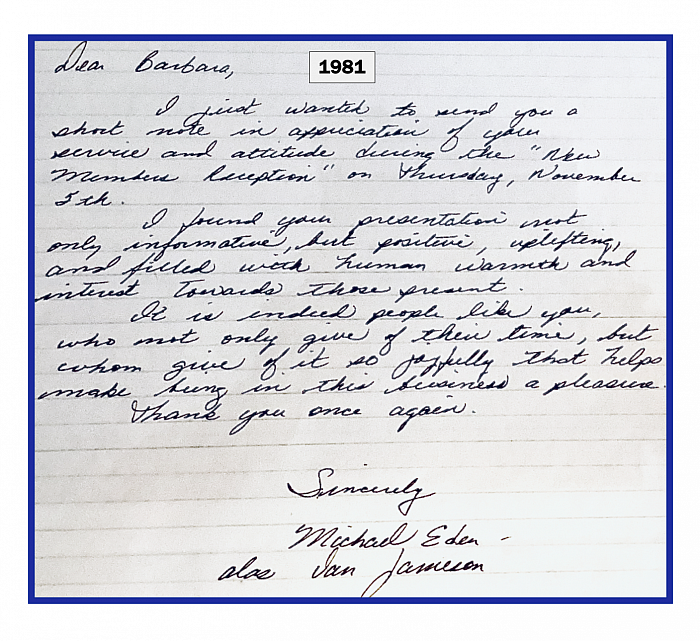 Dear Barbara,
1981
I just wanted to send you a
short note in appreciation of your
service and attitude during the "New
Members Reception" on Thursday, November
5th.
I found your presentation not
only informative, but positive, uplifting,
and filled with human warmth and
interest towards those present.
It is indeed people like you,
who not only give of their time, but
whom give of it so joyfully that helps
make being in this business a pleasure.
Thank you once again.
Sincerely
Michael Eden -
alas Ian Jameson